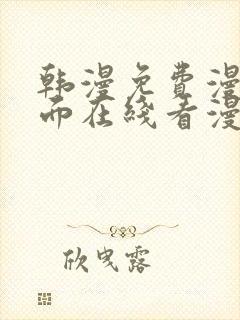 韩漫免费漫
而在线看漫
欣曳露